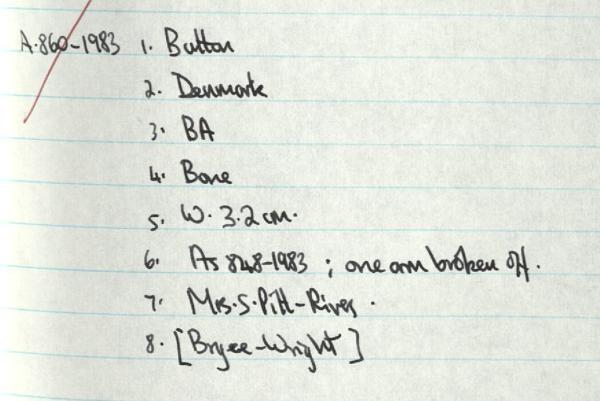 A.860-1983 1. Button
2. Denmark
3. BA
4. Bone
5. W. 3.2cm.
6. As 848-1983 ; one arm broken off.
7. Mrs. S. Pitt-Rivers.
8. [Bryce-Wright]